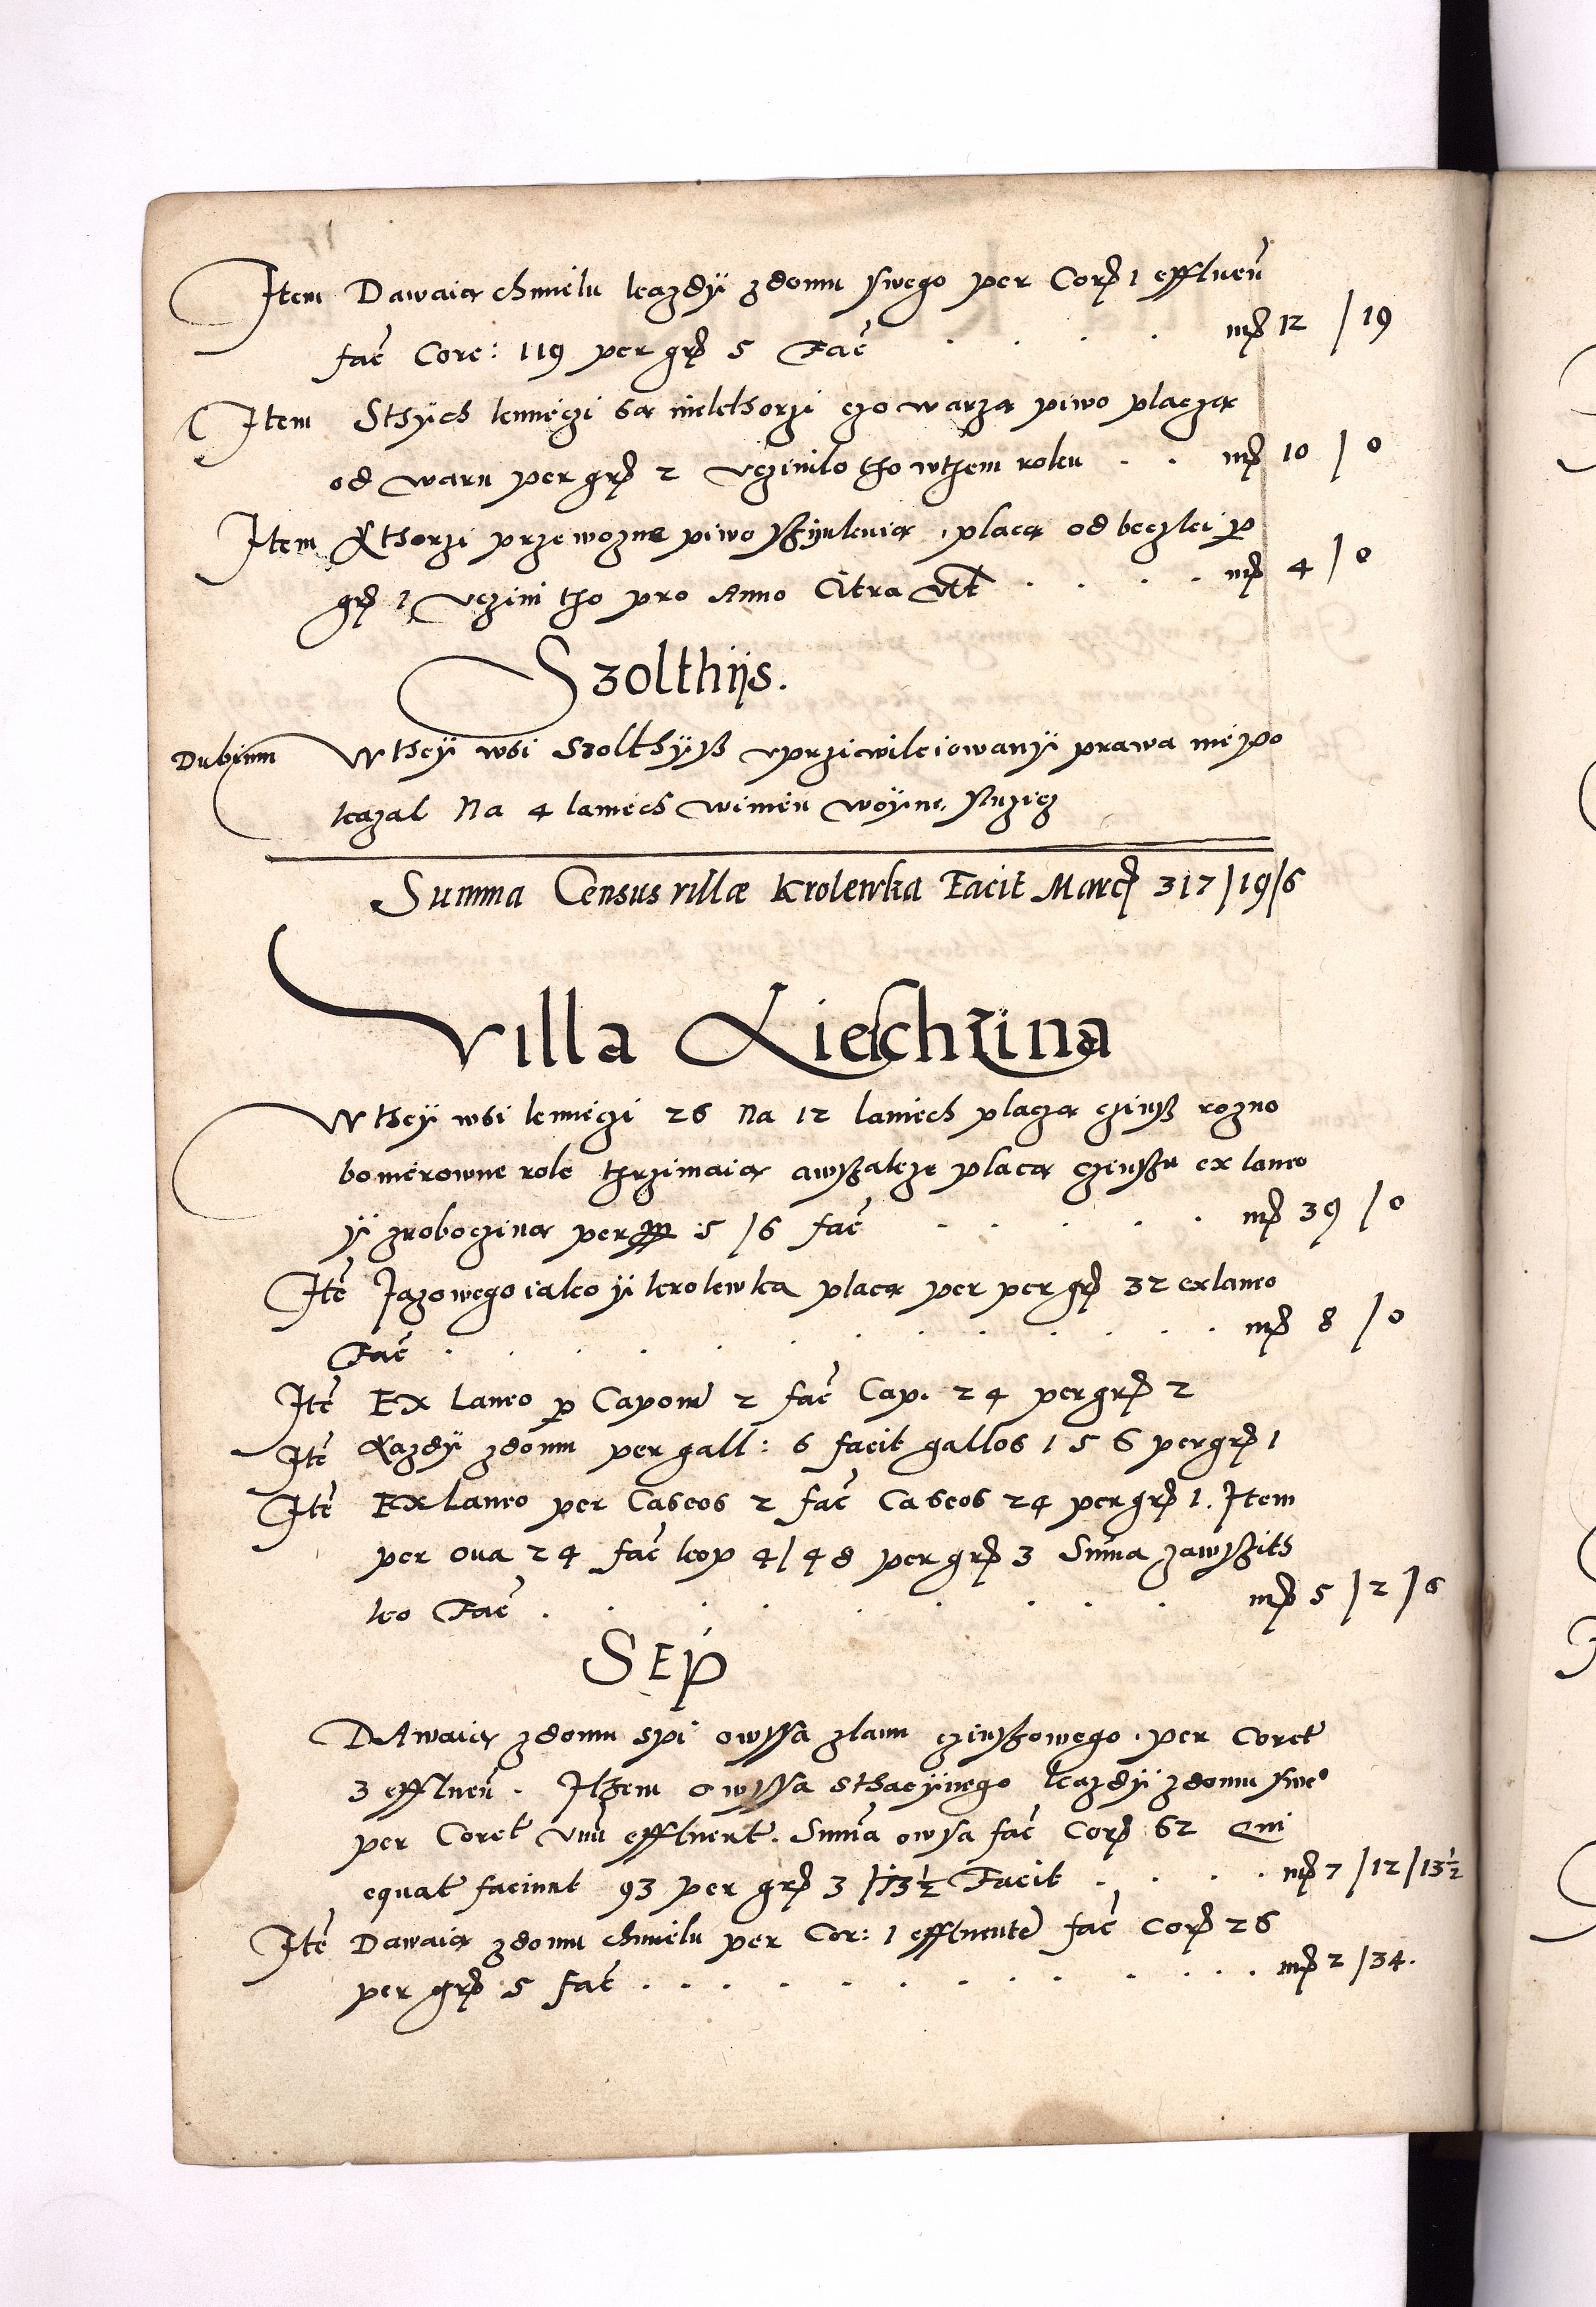 Item Dawaia chmielu kazdÿ zdomu swego per Cor 1 effluen
fac Core: 119 per gr 5 Fac . . . . mr 12 / 19
Item Sthÿch kmieczi sa niekthorzi czo warza piwo placza
od waru per gr 2 vczinilo tho wthem roku . . mr 10 / 0
Item Kthorzi przewozne piwo sszÿnkuia, placa od beczki p
gr 1 vczini tho pro Anno Citra vt . . . . mr 4 / 0
Szolthÿs.
Dubium
Wtheÿ wsi Szolthÿsz vprziwileiowanÿ prawa nie po
kazal Na 4 laniech winien woÿne sluzicz
Summa Census villæ Krolewka Facit Marc 317/19/6
Villa Lieschzina
Wtheÿ wsi kmieczi 26 Na 12 laniech placza czinsz rozno
bo nierowne role thrzimaia awszakze placa czinszu ex laneo
ÿ zroboczizna per m 5 / 6 fac . . . . . mr 39 / 0
Ite Jazowego iako ÿ krolewka placa per per gr 32 ex laneo
Fac . . . . . . . . . . mr 8 / 0
Ite Ex Laneo p Capon 2 fac Cap. 24 per gr 2
Ite Kazdÿ zdomu per gall: 6 facit gallos 156 per gr 1
Ite Ex Laneo per Caseos 2 fac Caseos 24 per gr 1. Item
per oua 24 fac kop 4/48 per gr 3 Suma zawszitk
ko Fac . . . . . . . . mr 5 / 2 / 6
SEP
DAwaia zdomu spi owssa zlanu czinszowego. per Coret
3 effluen. Ithem owssa sthacÿinego kazdÿ zdomu swe°
per Coret vnu effluent. Suma owsa fac Cor 62 Qui
equat faciunt 93 per gr 3 /13½ Facit . . . . mr 7 /12/13½
Ite Dawaia zdomu chmielu per Cor: 1 effluente fac Cor 26
per gr 5 fac . . . . . . . . . . . mr 2 /34.